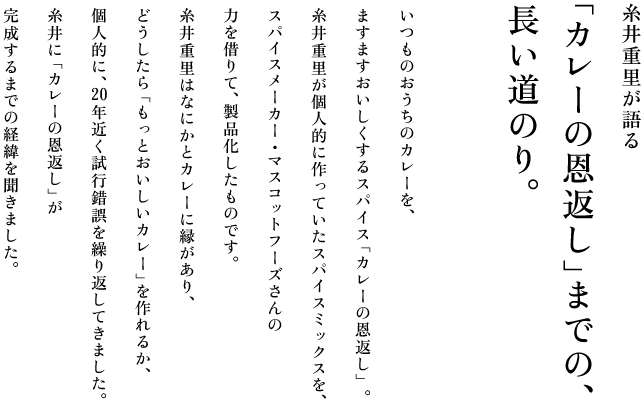 糸井重里が語る
「カレーの恩返し」までの、
長い道のり。
いつものおうちのカレーを、
ますますおいしくするスパイス「カレーの恩返し」。
糸井重里が個人的に作っていたスパイスミックスを、
スパイスメーカー・マスコットフーズさんの
力を借りて、製品化したものです。
糸井重里はなにかとカレーに縁があり、
どうしたら「もっとおいしいカレー」を作れるか、
個人的に、20年近く試行錯誤を繰り返してきました。
糸井に「カレーの恩返し」が
完成するまでの経緯を聞きました。